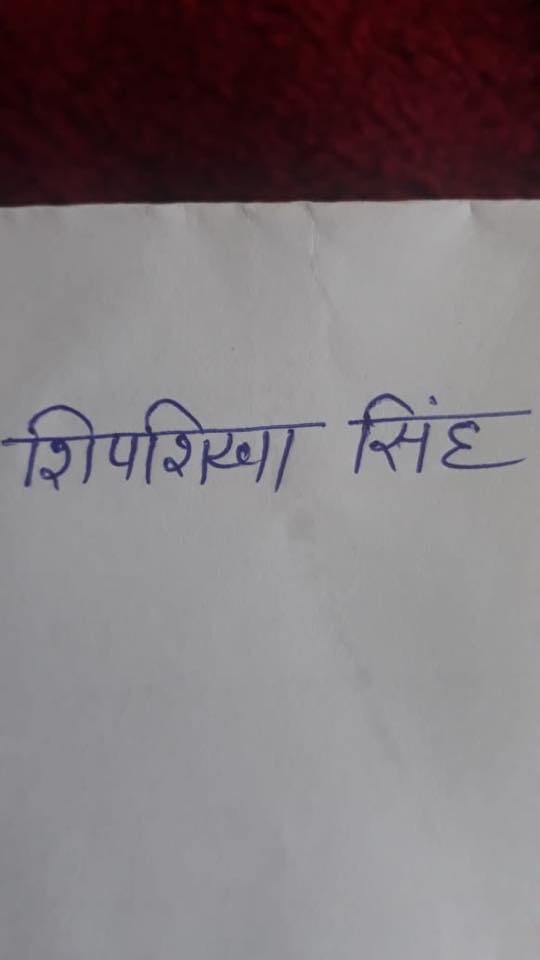 शिपशिखा सिंह